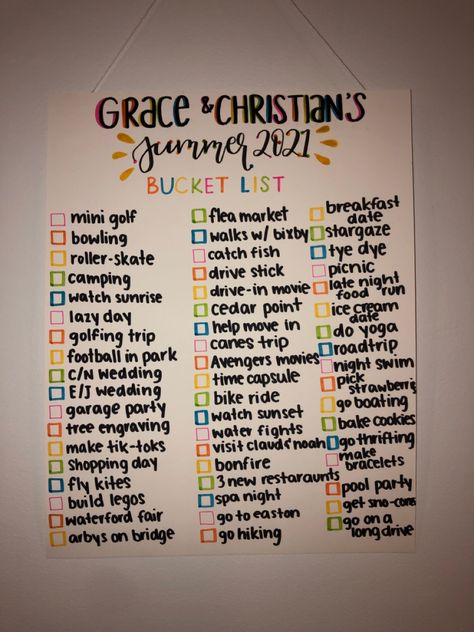 GRACE & CHRISTIAN'S
Summer 2021
BUCKET LIST
mini golf
bowling
roller-skate
camping
watch sunrise
lazy day
golfing trip
football in park
C/N wedding
E/J wedding
garage party
tree engraving
make tik-toks
shopping day
fly kites
build legos
waterford fair
arbys on bridge
flea market
walks w/ bixby
catch fish
drive stick
drive-in movie
cedar point
help move in
canes trip
Avengers movies
time capsule
bike ride
watch sunset
water fights
visit claud & noah
bonfire
3 new restaraunts
spa night
go to easton
go hiking
breakfast
date
stargaze
tye dye
picnic
late night
food run
ice cream
date
do yoga
roadtrip
night swim
pick
strawberris
go boating
bake cookies
go thrifting
make
bracelets
pool party
get sno-cons
go on a
long drive